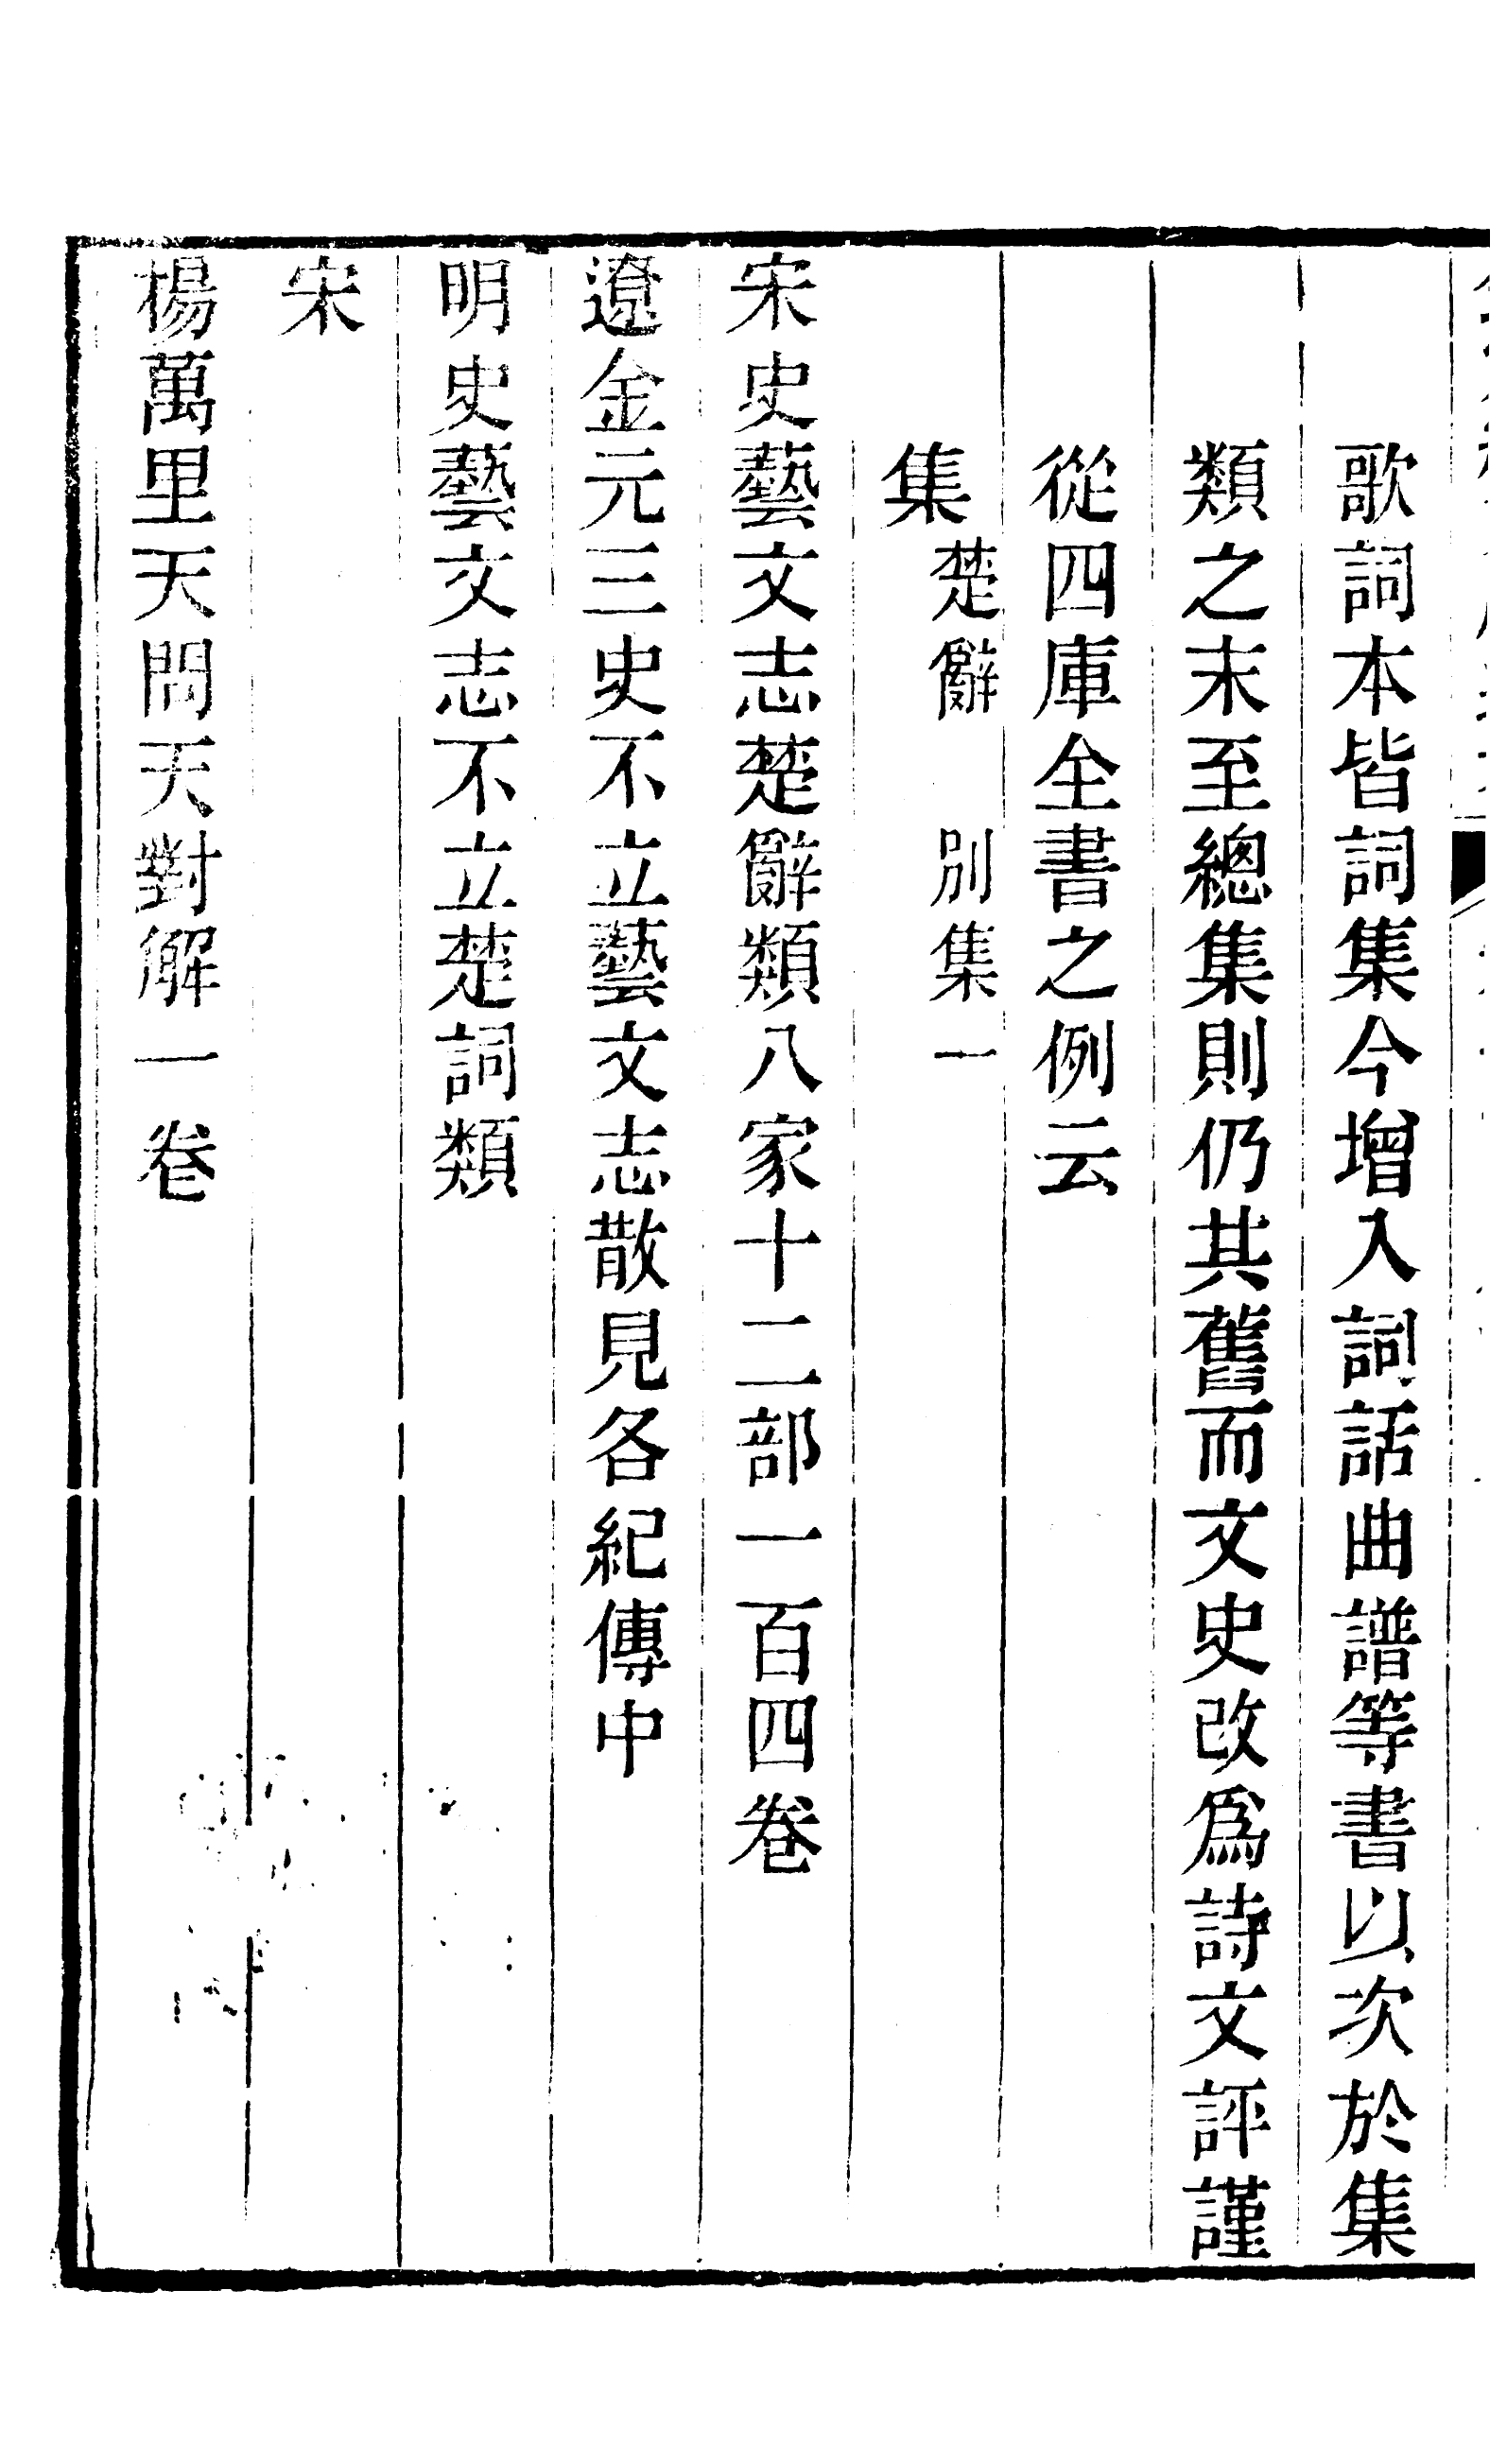 歌詞本皆詞集今增入詞話曲譜等書以次於集
類之末至總集則仍其舊而文史改爲詩文評謹
從四庫全書之例云
集楚辭 別集一
宋史藝文志楚辭類八家十二部一百四卷
遼金元三史不立藝文志散見各紀傳中
明史藝文志不立楚詞類
宋
楊萬里天問天對解一卷